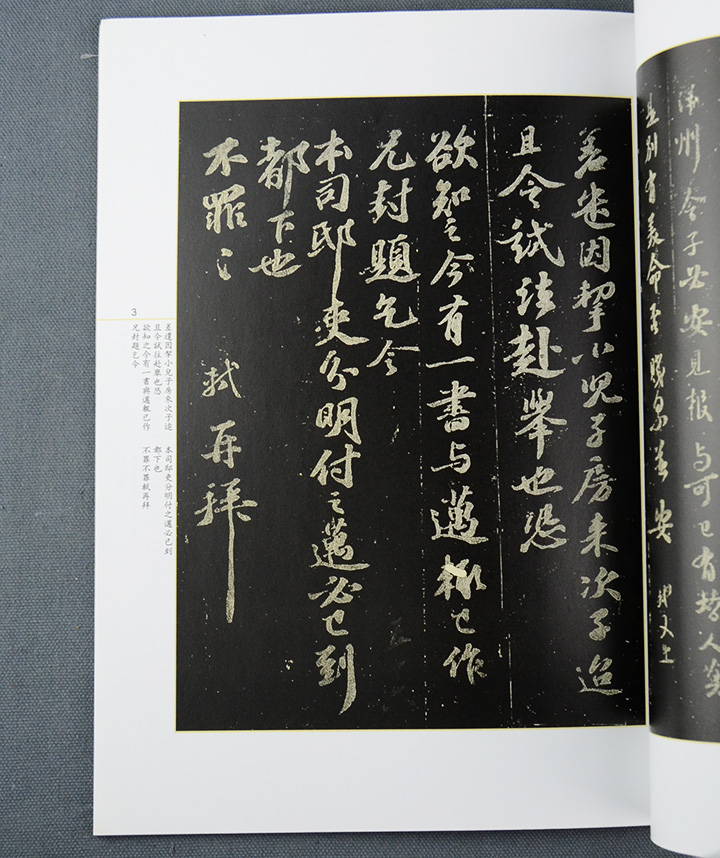 州令子必安見报与可已有替人
且別有美命
差遣因挈小兒子房来次子迨
且令試往赴舉也恐
欲知之今有一書与邁輒已作
兄封題乞令
本司邸吏分明付之邁必已到
都下也
不罪〻 軾再拜
3
差遣因挈小兒子房來次子迨
且令試往赴舉也恐
欲知之今有一書與邁輒已作
兄封題乞令
本司邸吏分明付之邁必已到
都下也
不罪不罪軾再拜